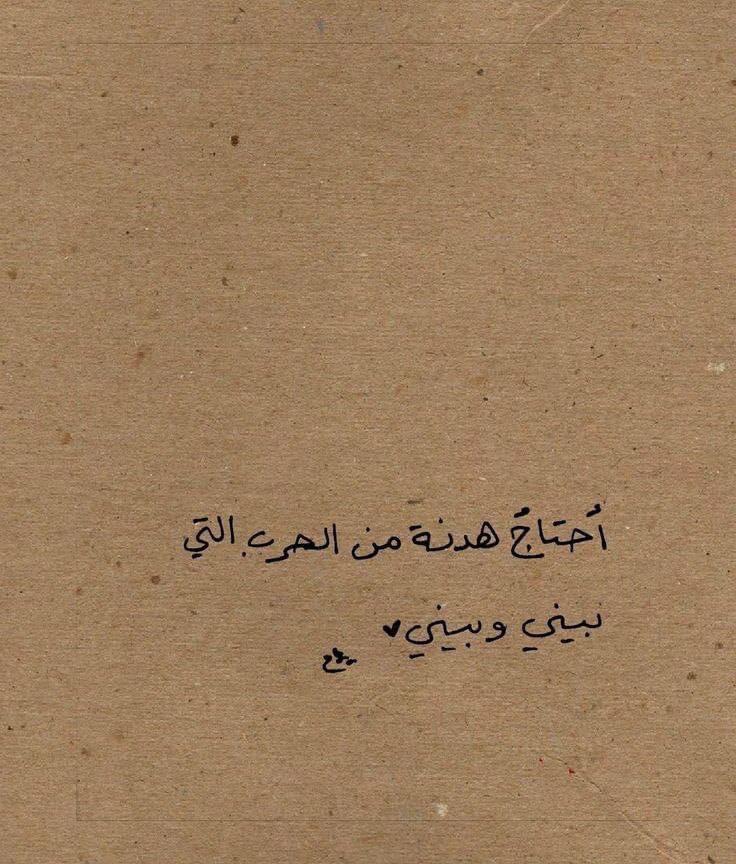 أَحتاجُ هدنة من الحرب التي
بيني وبيني♥